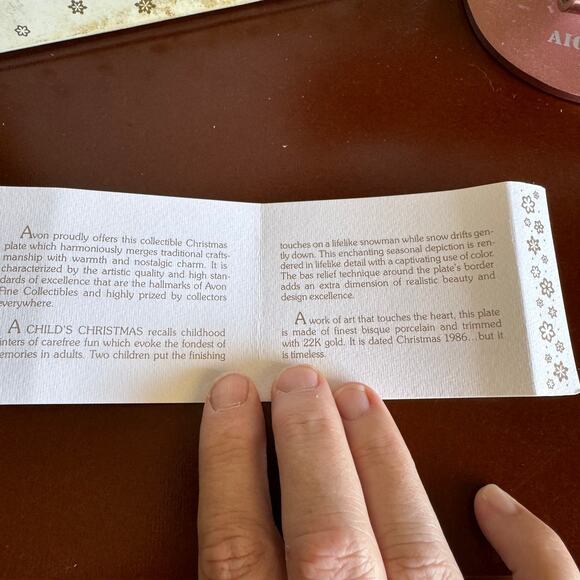 Avon proudly offers this collectible Christmas
plate which harmoniously merges traditional crafts-
manship with warmth and nostalgic charm. It is
characterized by the artistic quality and high stan-
dards of excellence that are the hallmarks of Avon
Fine Collectibles and highly prized by collectors
everywhere.
A CHILD'S CHRISTMAS recalls childhood
inters of carefree fun which evoke the fondest of
emories in adults. Two children put the finishing
touches on a lifelike snowman while snow drifts gen-
tly down. This enchanting seasonal depiction is ren-
dered in lifelike detail with a captivating use of color.
The bas relief technique around the plate's border
adds an extra dimension of realistic beauty and
design excellence.
A work of art that touches the heart, this plate
is made of finest bisque porcelain and trimmed
with 22K gold. It is dated Christmas 1986...but it
is timeless.